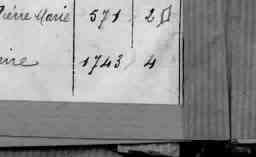 Pierre Marie 571 2
1743 4